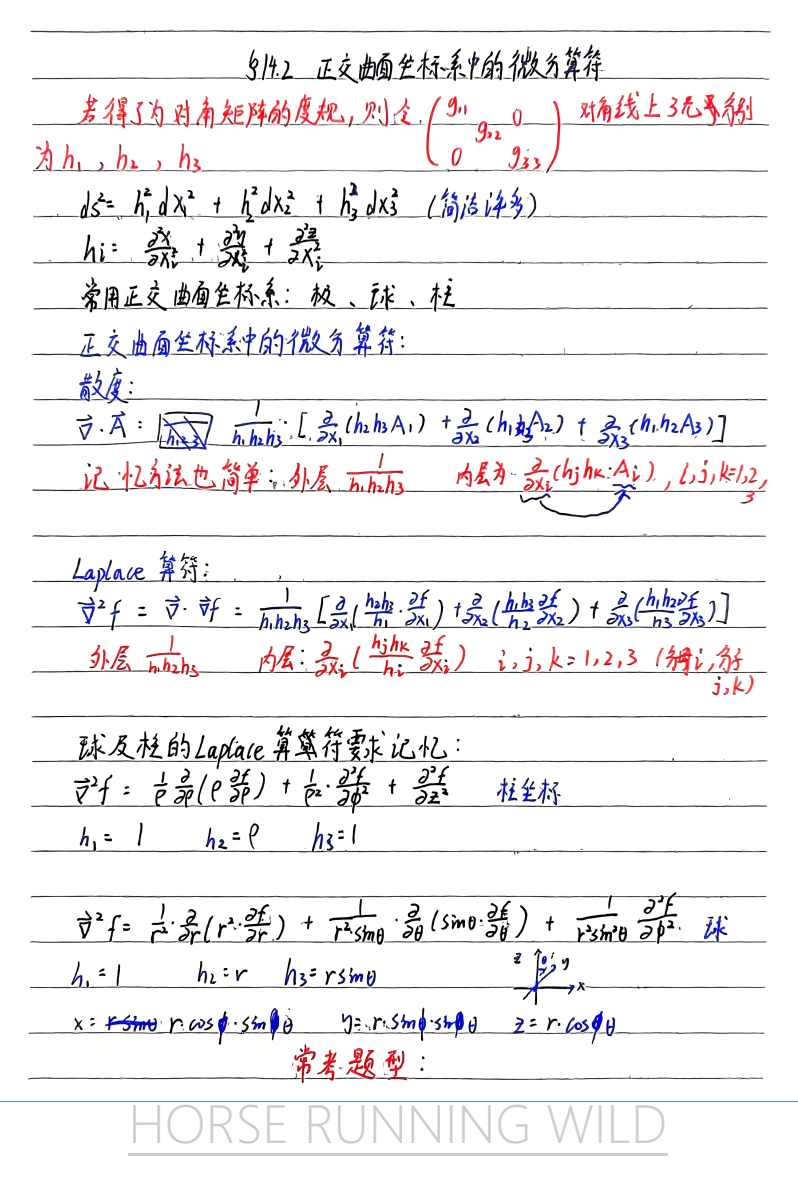 §14.2 正交曲面坐标系中的微分算符
若得了为对角矩阵的度规,则令 (g₁₁ g₂₂ 0 0 g₃₃) 对角线上3元素分别
为 h₁, h₂, h₃
ds² = h₁²dx₁² + h₂²dx₂² + h₃²dx₃² (简洁许多)
hi = ∂²x/∂xᵢ² + ∂²y/∂xᵢ² + ∂²z/∂xᵢ²
常用正交曲面坐标系: 极、球、柱
正交曲面坐标系中的微分算符:
散度:
∇⃗·A⃗ = 1/(h₁h₂h₃)·[∂/∂x₁(h₂h₃A₁) + ∂/∂x₂(h₁h₃A₂) + ∂/∂x₃(h₁h₂A₃)]
记忆方法也简单: 外层 1/(h₁h₂h₃) 内层为 ∂/∂xᵢ(hjhk·Aᵢ), i,j,k=1,2,3
Laplace 算符:
∇⃗²f = ∇⃗·∇⃗f = 1/(h₁h₂h₃)[∂/∂x₁(h₂h₃/h₁·∂f/∂x₁) + ∂/∂x₂(h₁h₃/h₂ ∂f/∂x₂) + ∂/∂x₃(h₁h₂/h₃ ∂f/∂x₃)]
外层 1/(h₁h₂h₃) 内层: ∂/∂xᵢ(hjhk/hi ∂f/∂xᵢ) i,j,k=1,2,3 (分母i,分子j,k)
球及柱的Laplace算符要求记忆:
∇⃗²f = 1/ρ ∂/∂ρ(ρ ∂f/∂ρ) + 1/ρ²·∂²f/∂φ² + ∂²f/∂z² 柱坐标
h₁=1 h₂=ρ h₃=1
∇⃗²f = 1/r²·∂/∂r(r²·∂f/∂r) + 1/(r²sinθ)·∂/∂θ(sinθ·∂f/∂θ) + 1/(r²sin²θ) ∂²f/∂φ² 球
h₁=1 h₂=r h₃=rsinθ
z θ y x
x = r·cosφ·sinθ y = r·sinφ·sinθ z = r·cosθ
常考题型:
HORSE RUNNING WILD